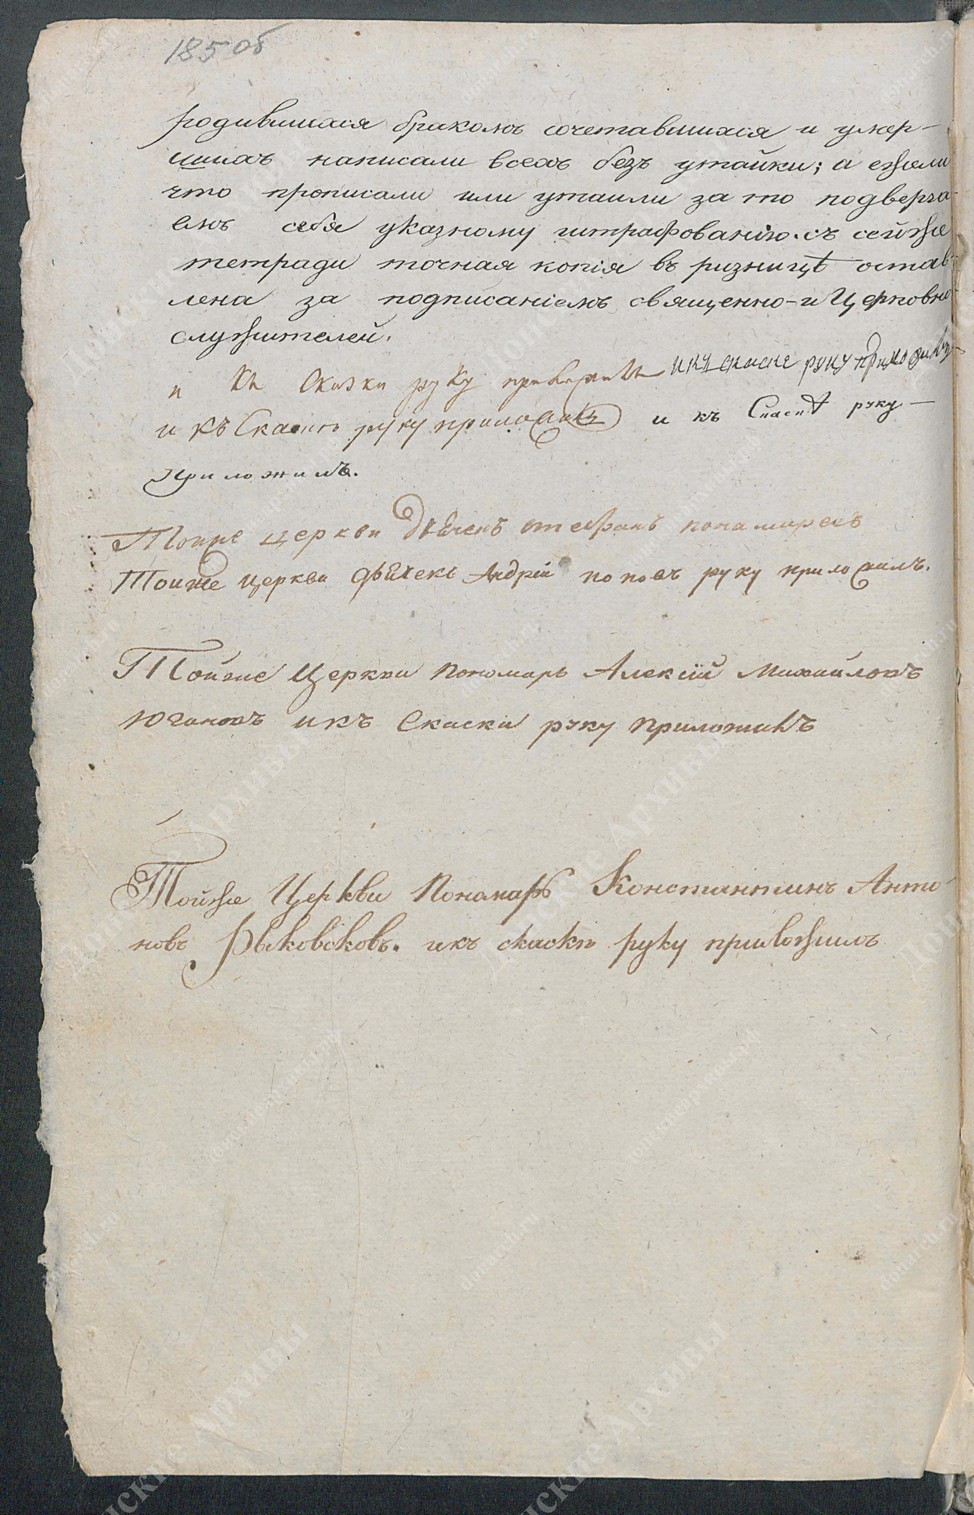 185 об
родившихся бракомъ сочетавшихся и умер-
шихъ написали всехъ безъ утайки; а ежели
что прописали или утаили за то подверга-
емъ себя указному штрафованію. съ сейже
тетради точная копія въ ризницѣ остав-
лена за подписаніемъ священно- и Церковно
служителей.
и къ Скаски руку приложилъ и къ скаске руку приложилъ
и къ Скаски руку приложилъ и къ Скаскѣ руку
приложилъ.
Тойже церкви дьячекъ Стефанъ пономаревъ
Тойже церкви дьячекъ Андрей поповъ руку приложилъ.
Тойже Церкви Пономарь Алексій Михайловъ
Югановъ и къ Скаски руку приложилъ
Тойже Церкви Пономарь Константинъ Анто
новъ Рыковсковъ. и къ скаски руку приложилъ